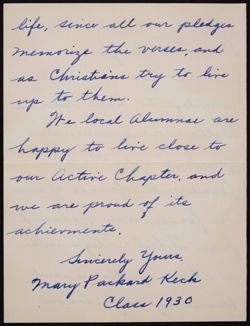 life, since all our pledges
memorize the verses, and
as Christians try to live
up to them.
We local Alumnae are
happy to live close to
our Active Chapter, and
we are proud of its
achievments.
Sincerely Yours,
Mary Packard Keck
Class 1930